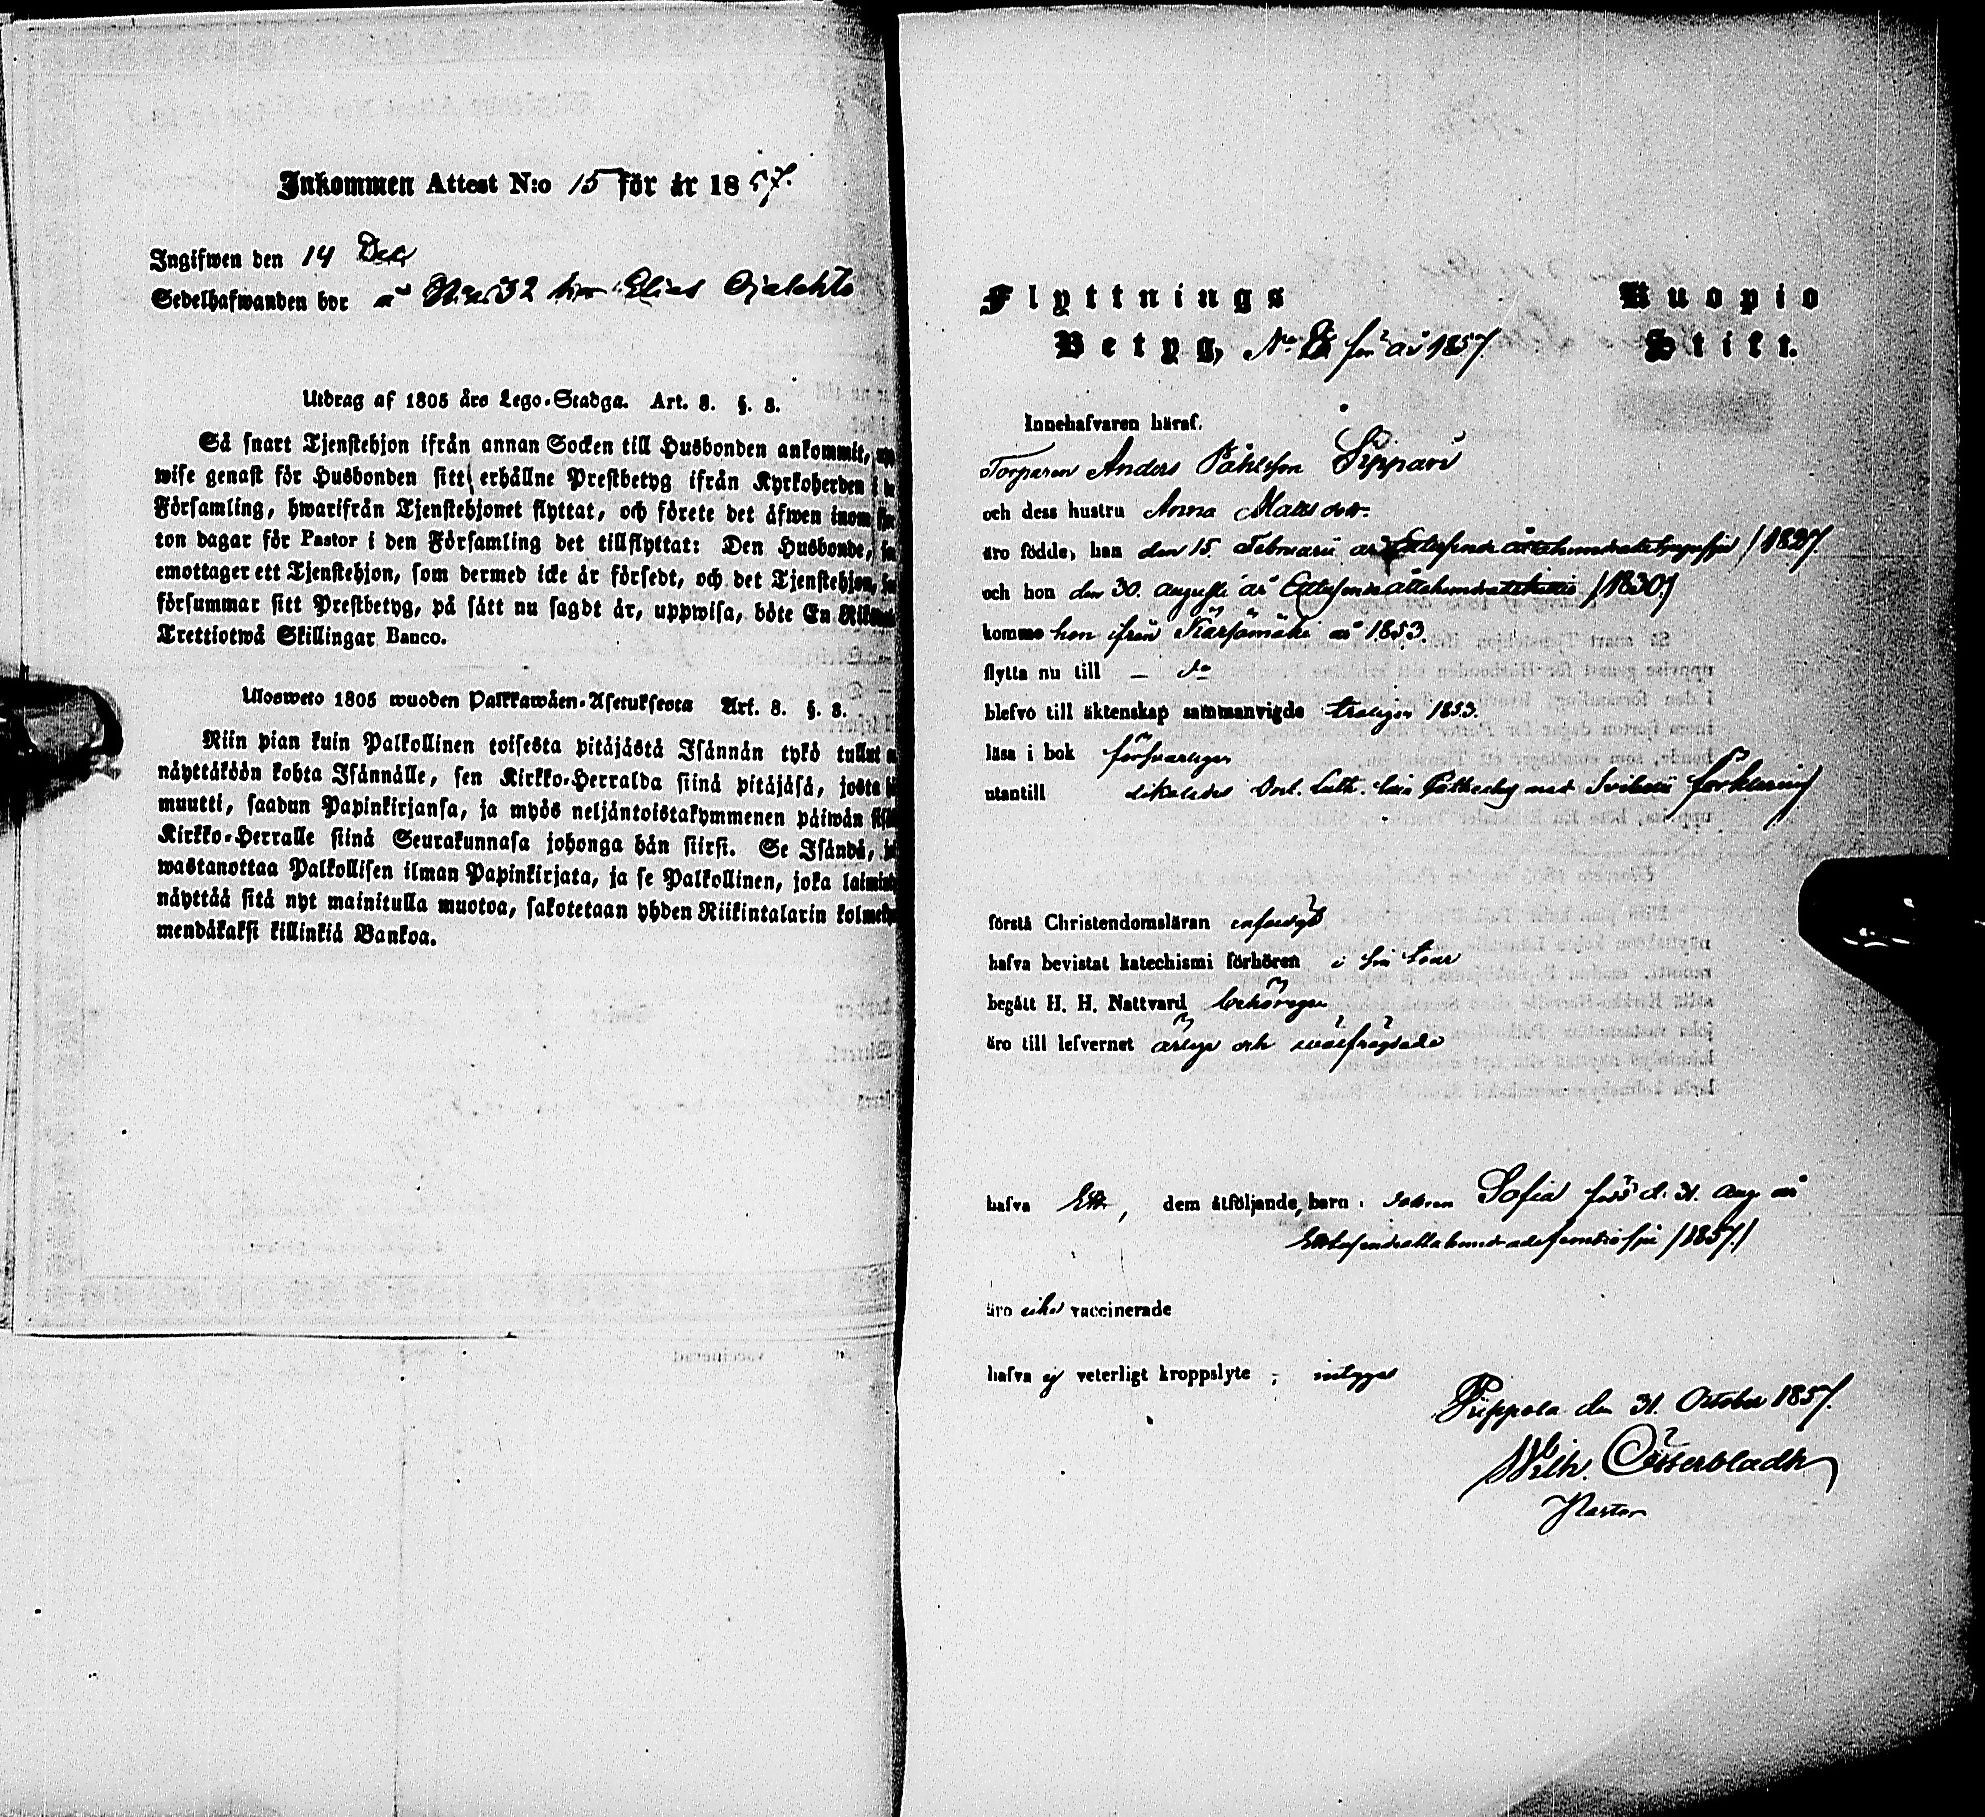 Inkommen Attest N:o 15 för år 1857.
Ingifwen den 14 Decr
Sedelhafwanden bor å N:o 32 hos Elias Ojalehto
Utdrag af 1805 års Lego-Stadga. Art. 8. §. 8.
Så snart Tjenstehjon ifrån annan Socken till Husbonden ankommit,
wise genast för Husbonden sitt erhållne Prestbetyg ifrån Kyrkoherden i
Församling, hwarifrån Tjenstehjonet flyttat, och förete det äfwen inom
ton dagar för Pastor i den Församling det tillflyttat: Den Husbonde,
emottager ett Tjenstehjon, som dermed icke är försedt, och det Tjenstehjon,
försummar sitt Prestbetyg, på sätt nu sagdt är, uppwisa, böte En
Trettiotwå Skillingar Banco.
Ulosweto 1805 wuoden Palkkawäen-Asetuksesta Art. 8. §. 8.
Niin pian kuin Palkollinen toisesta pitäjästä Isännän tykö tullut
näyttäköön kohta Isännälle, sen Kirkko-Herralda siinä pitäjäsä, josta
muutti, saadun Papinkirjansa, ja myös neljäntoistakymmenen päiwän
Kirkko-Herralle siinä Seurakunnasa johonga hän siirsi. Se Isändä,
wastanottaa Palkollisen ilman Papinkirjata, ja se Palkollinen, joka
näyttää sitä nyt mainitulla muotoa, sakotetaan yhden Riikintalarin
mendäkaksi killinkiä Bankoa.
Flyttnings Kuopio
Betyg, No för år 1857. Stift.
Innehafvaren häraf.
Torparen Anders Påhlsson Sippari
och dess hustru Anna Matts dotr.
äro födde, han den 15. Februari år
och hon den 30. Augusti år Ettusende åttahundrade trettio /1830/
komme hon ifrån Kärsämäki år 1853.
flytta nu till — do
blefvo till äktenskap sammanvigde 1853.
läsa i bok försvarligen
utantill Luth. Lilla Catheches med Svebelii förklaring
förstå Christendomsläran enfaldigt
hafva bevistat katechismi förhören i sin tour
begått H. H. Nattvard behörigen
äro till lefvernet ärlige och välfrägdade
hafva Ett, dem åtföljande, barn: dottren Sofia född d. 31. Aug. år
Ettusendeåttahundradefemtiosju /1857/
äro vaccinerade
hafva ej veterligt kroppslyte; intygas
Pippola den 31. October 1857.
Wilh. Österbladh
Pastor